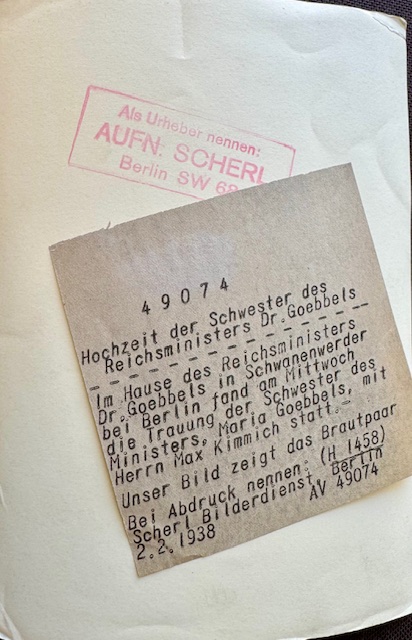 Als Urheber nennen:
AUFN. SCHERL
Berlin SW 68
49074
Hochzeit der Schwester des
Reichsministers Dr.Goebbels
Im Hause des Reichsministers
Dr.Goebbels in Schwanenwerder
bei Berlin fand am Mittwoch
die Trauung der Schwester des
Ministers, Maria Goebbels, mit
Herrn Max Kimmich statt.-
Unser Bild zeigt das Brautpaar
Bei Abdruck nennen: (H 1458)
Scherl Bilderdienst, Berlin
2.2.1938 AV 49074